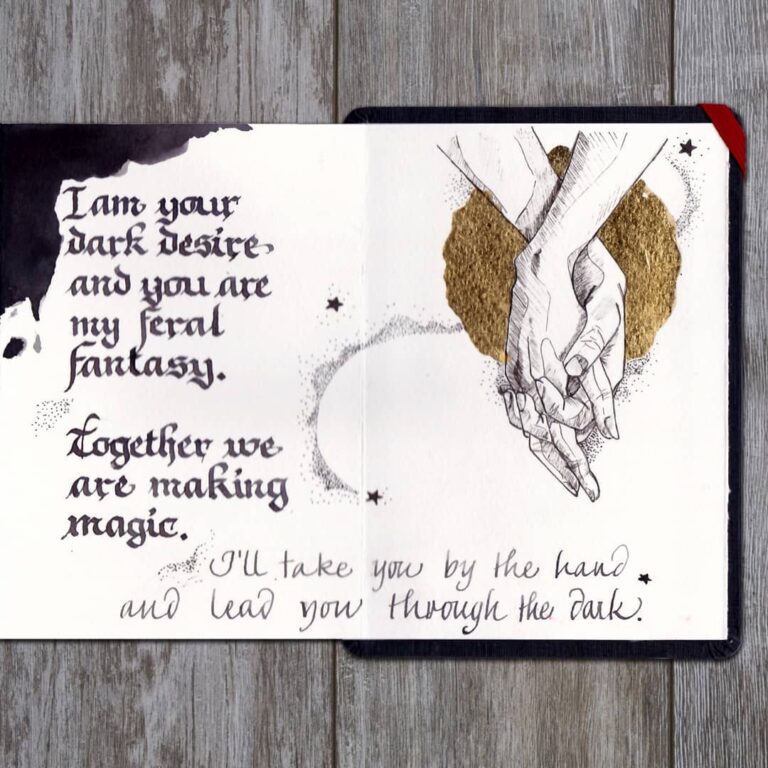 I am your
dark desire
and you are
my feral
fantasy.
Together we
are making
magic.
I'll take you by the hand
and lead you through the dark.